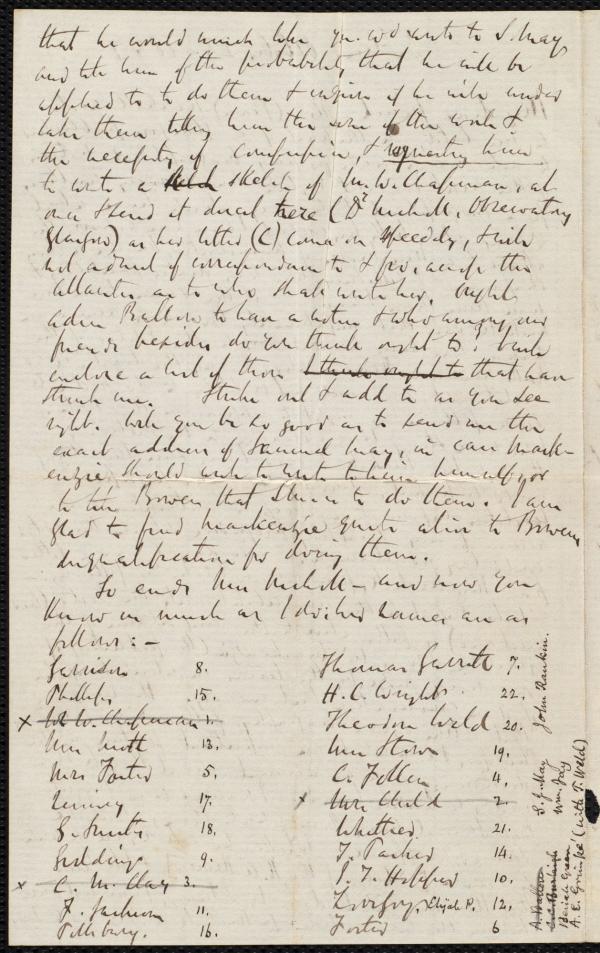 that he would much like you wd write to S. May
and tell him of the probability that he will be
applied to to do them & enquire if he will under
take them telling him the size of the work &
the necessity of compression, & requesting him
to write a sketch sketch of Mrs. W. Chapman, at
once & send it direct here (Dr Nichol, Observatory
Glasgow) as her letter (C) comes on speedily, & will
not admit of correspondence to & fro, across the
Atlantic as to who shall write her. Ought
Adin Ballou to have a notice & who among our
friends besides do you think ought to? I will
enclose a list of those I think ought to that have
struck me. Strike out & add to as you see
right. Will you be so good as to send me the
exact address of Samuel May, in case Mack-
enzie should wish to write to him himself or
to tell Bowen that he is to do them. I am
glad to find Mackenzie quite alive to Bowen's
disqualification for doing them.
So ends Mrs Nichol — and now you
know as much as I do. Her names are as
follows: —
Garrison 8.
Phillips 15.
x M. W. Chapman 1.
Mrs Mott 13.
Mrs Foster 5.
Quincy 17.
G. Smith 18.
Giddings 9.
x C. M. Clay 3.
F. Jackson 11.
Pillsbury. 16.
Thomas Garrett 7.
H. C. Wright 22.
Theodore Weld 20.
Mrs Stowe 19.
C. Follen 4.
x Mrs Child 2.
Whittier 21.
T. Parker 14.
I. T. Hopper 10.
Lovejoy, Elijah P. 12.
Foster 6
A. Ballou
Burleigh
Beriah Green
A. E. Grimké (with T. Weld)
S. J. May
Wm. Jay
John Rankin.